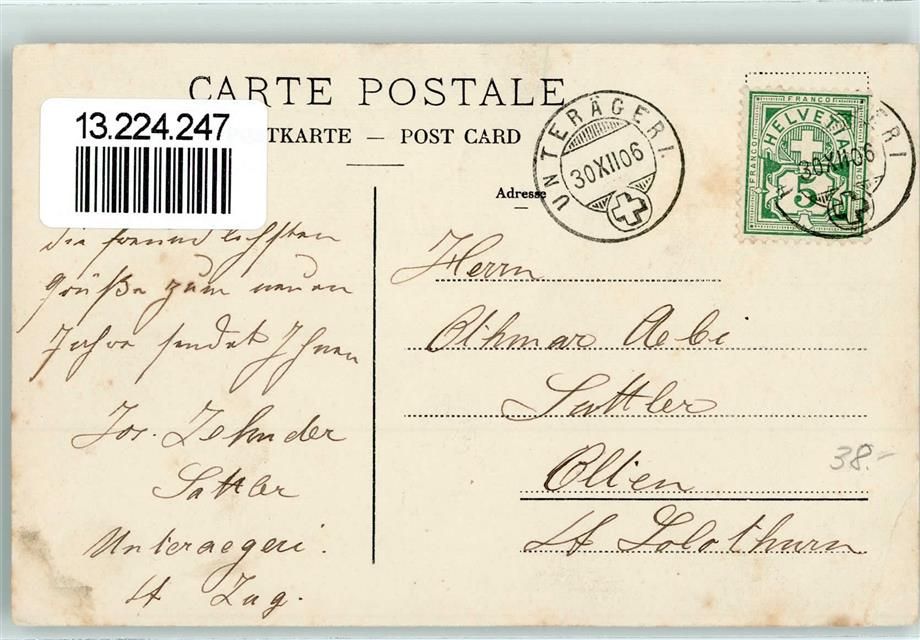 CARTE POSTALE
13.224.247
TKARTE — POST CARD
Adresse
UNTERÄGERI.
30XII06
FRANCO
HELVETIA
5
ERI
30XII06
die freundlichsten
Grüße zum neuen
Jahre sendet Ihnen
Jos. Zehnder
Sattler
Unteraegeri.
Kt Zug.
Herrn
Othmar Aebi
Sattler
Olten
Kt Solothurn
38.-